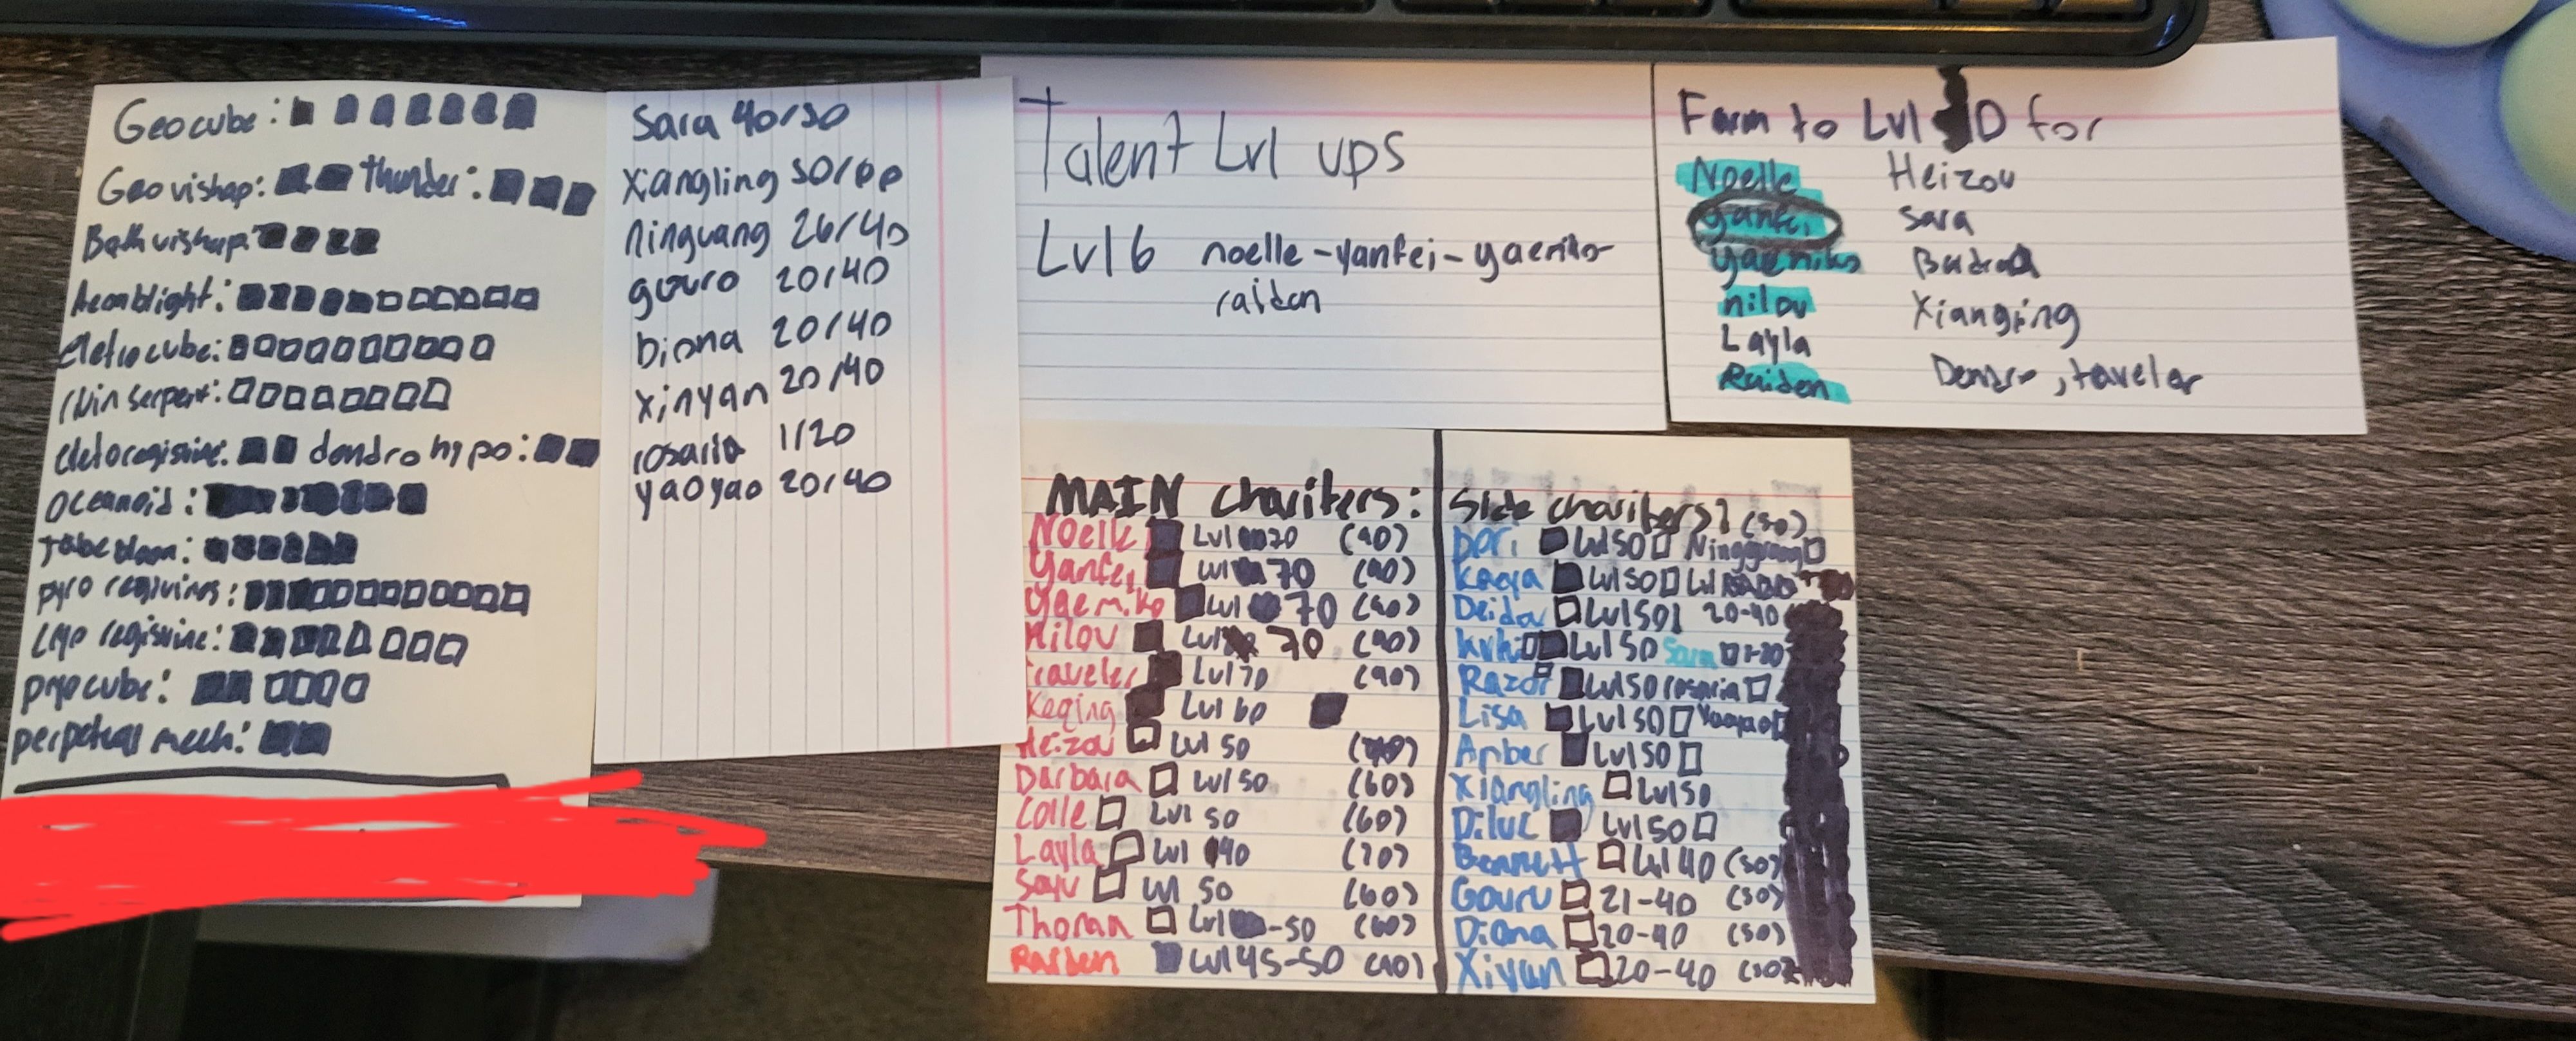 Geocube:
Geovishap: thunder:
Bathvishap:
Aeonblight:
eletrocube:
Ruin serpent:
eletoregisvine: dendro hypo:
Oceanoid:
pyro regivins:
cryo regisvine:
pyrocube:
perpetual mech:
Sara 40/50
Xiangling 50/60
Ningvang 26/40
gouro 20/40
Diona 20/40
xinyan 20/40
rosaria 1/20
yaoyao 20/40
Talent Lvl ups
Lvl 6 noelle-yanfei-yaemiko-
raiden
Farm to Lvl 0 for
Noelle Heizou
yanfei Sara
yaemiko
nilou
Layla
Raiden
MAIN chariters:
Noelle Lvl 70 (90)
Yanfei Lvl 70 (90)
Yaemiko Lvl 70 (90)
Nilou Lvl 70 (90)
traveler Lvl 70 (90)
Keqing Lvl 60
Heizou Lvl 50
Barbara Lvl 50 (60)
Colle Lvl 50 (60)
Layla Lvl 40 (70)
Sayu Lvl 50 (60)
Thoran Lvl -50 (60)
Raiden Lvl 45-50 (90)
Side (50)
Dori Lvl 50
Kaeya Lvl 50
Lvl 50 20-40
Lvl 50 Sara 1-20
Razor Lvl 50 rosaria
Lisa Lvl 50 Yaoyao
Amber Lvl 50
Xiangling Lvl 50
Diluc Lvl 50
Bennett Lvl 40 (50)
Gouru 21-40 (50)
Diona 20-40 (50)
20-40